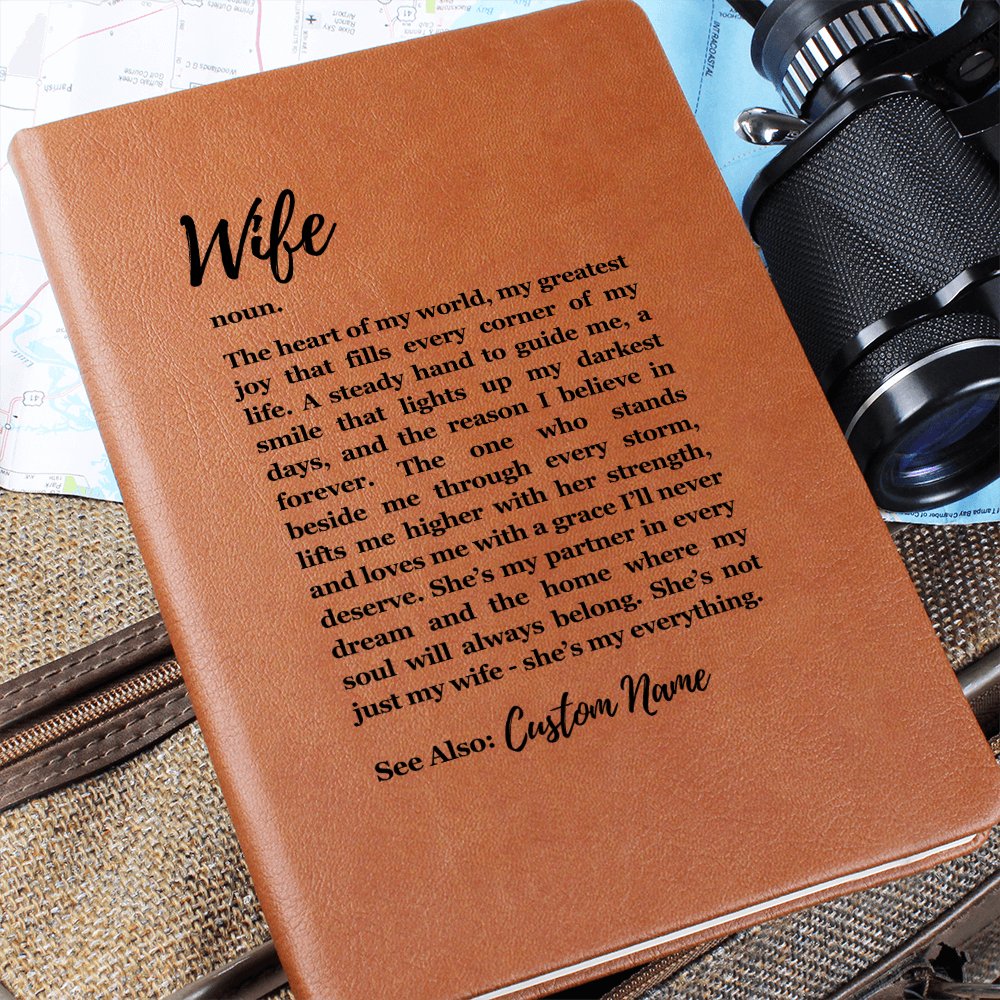 Wife
noun.
The heart of my world, my greatest
joy that fills every corner of my
life. A steady hand to guide me, a
smile that lights up my darkest
days, and the reason I believe in
forever. The one who stands
beside me through every storm,
lifts me higher with her strength,
and loves me with a grace I'll never
deserve. She's my partner in every
dream and the home where my
soul will always belong. She's not
just my wife - she's my everything.
See Also: Custom Name
Parrish
Buffalo Creek
Golf Course
Woodlands G C
Airport
Dixie Sky
Ranch
41
INTRACOASTAL
41
Park
Tampa Bay Chamber of